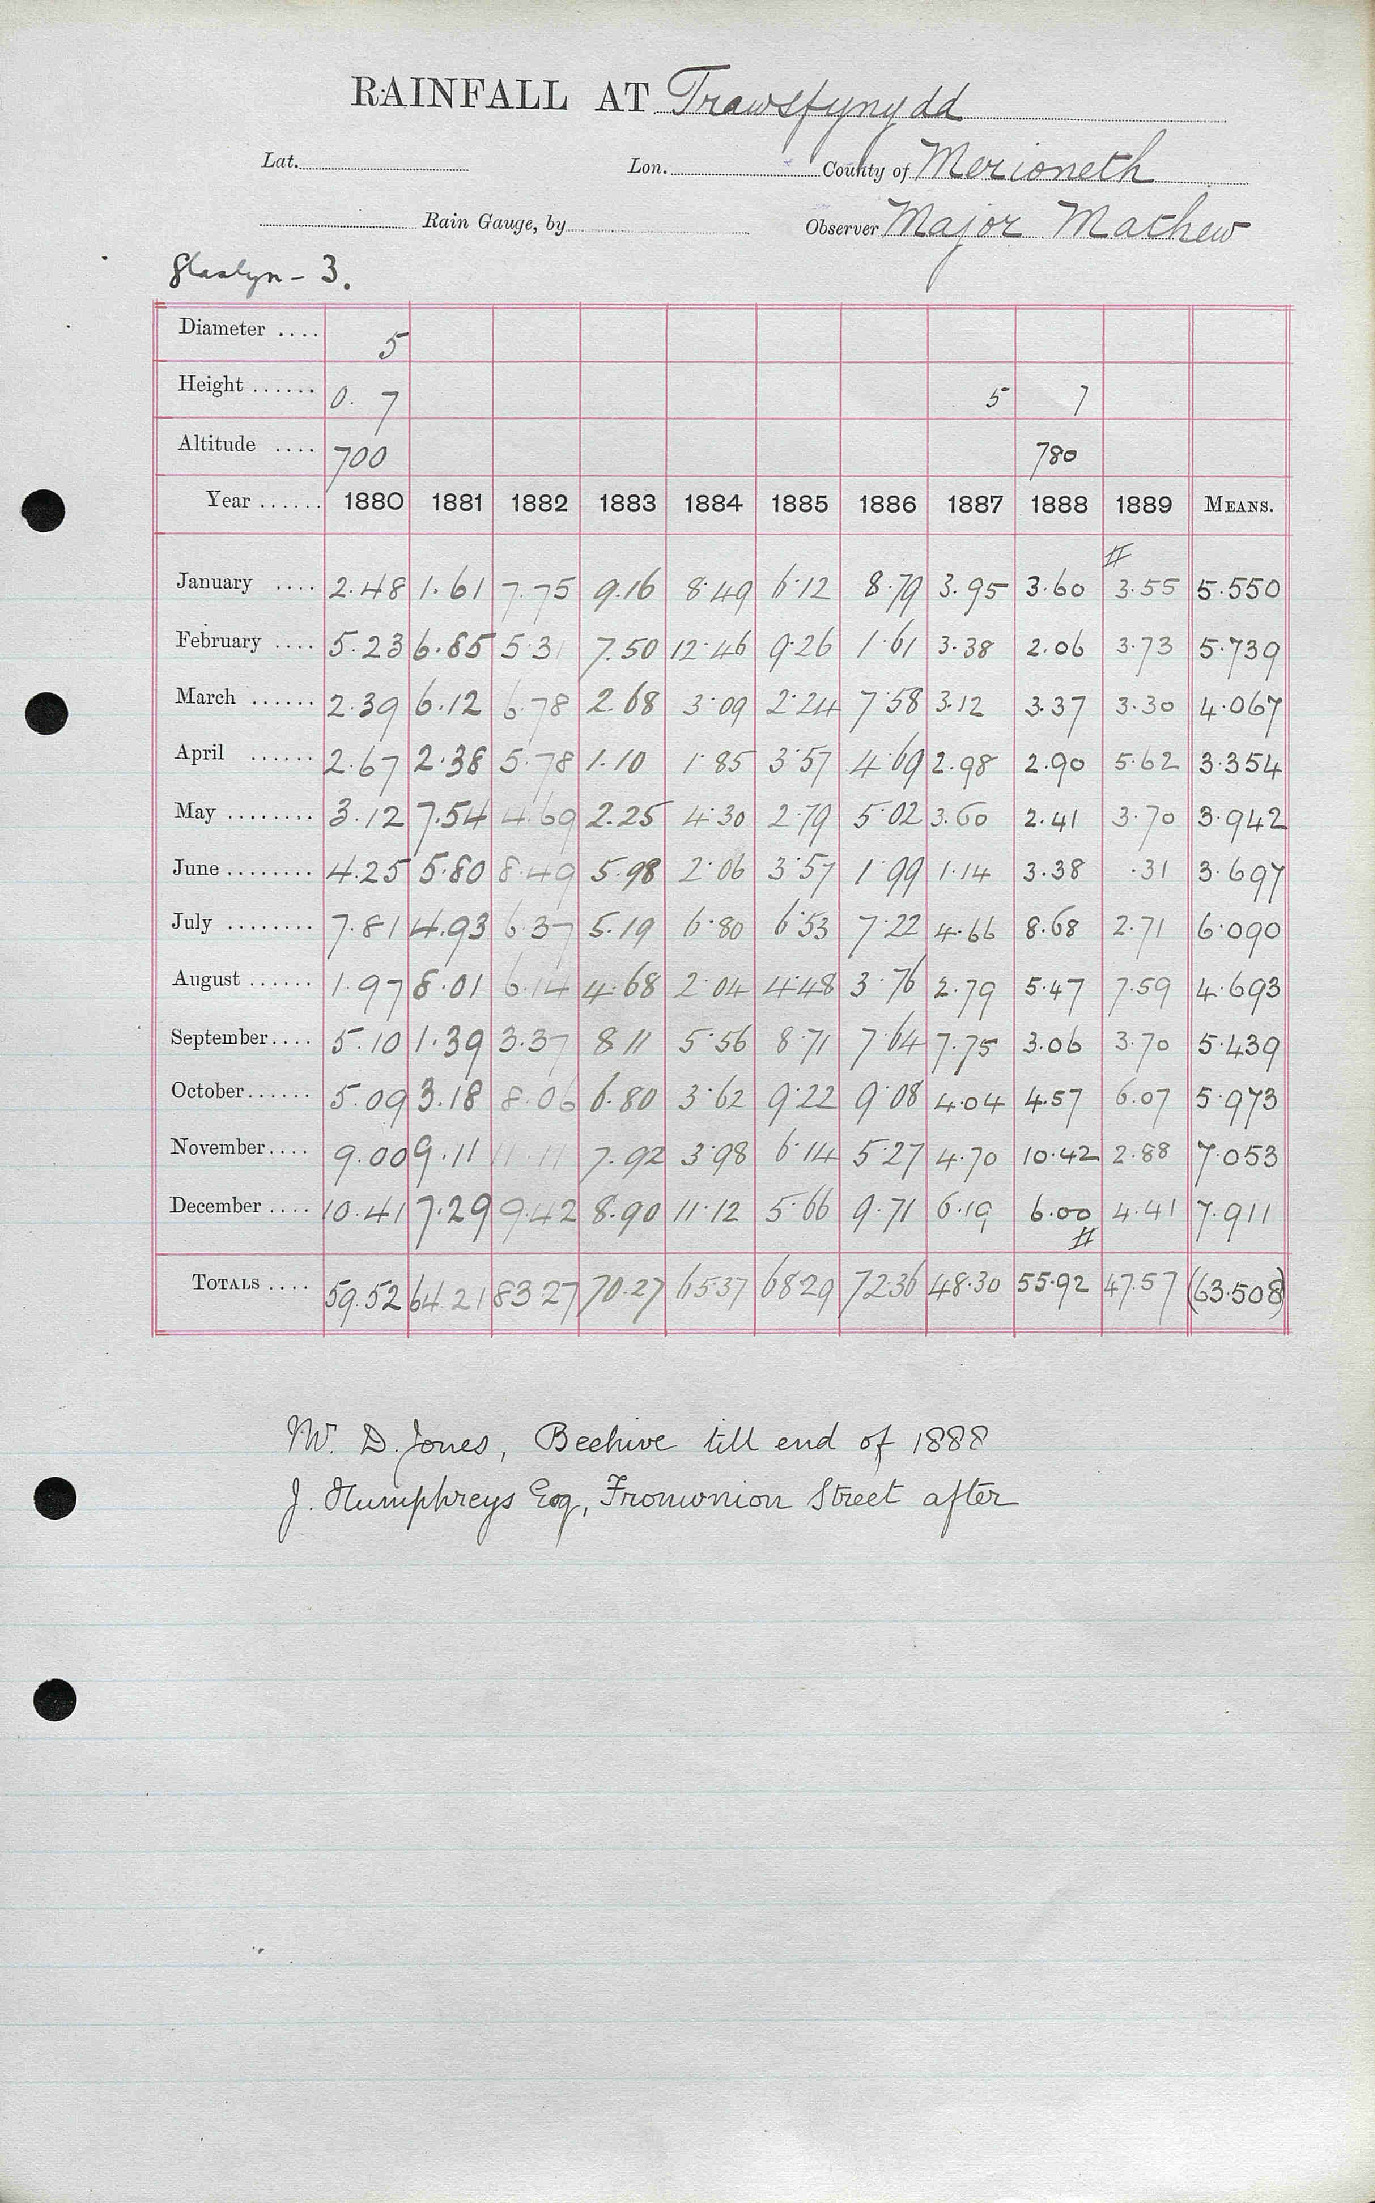 RAINFALL AT Trawsfynydd
Lat. Lon. County of Merioneth
Rain Gauge, by Observer Major Mathew
Glaslyn - 3.
Diameter .... 5
Height ...... 0. 7 5 7
Altitude .... 700 780
Year ...... 1880 1881 1882 1883 1884 1885 1886 1887 1888 1889 MEANS.
#
January .... 2.48 1.61 7.75 9.16 8.49 6.12 8.79 3.95 3.60 3.55 5.550
February .... 5.23 6.85 5.31 7.50 12.46 9.26 1.61 3.38 2.06 3.73 5.739
March ...... 2.39 6.12 6.78 2.68 3.09 2.24 7.58 3.12 3.37 3.30 4.067
April ...... 2.67 2.38 5.78 1.10 1.85 3.57 4.69 2.98 2.90 5.62 3.354
May ........ 3.12 7.54 4.69 2.25 4.30 2.79 5.02 3.60 2.41 3.70 3.942
June ........ 4.25 5.80 8.49 5.98 2.06 3.57 1.99 1.14 3.38 .31 3.697
July ........ 7.81 4.93 6.37 5.19 6.80 6.53 7.22 4.66 8.68 2.71 6.090
August ...... 1.97 8.01 6.14 4.68 2.04 4.48 3.76 2.79 5.47 7.59 4.693
September.... 5.10 1.39 3.37 8.11 5.56 8.71 7.64 7.75 3.06 3.70 5.439
October...... 5.09 3.18 8.06 6.80 3.62 9.22 9.08 4.04 4.57 6.07 5.973
November.... 9.00 9.11 11.11 7.92 3.98 6.14 5.27 4.70 10.42 2.88 7.053
December .... 10.41 7.29 9.42 8.90 11.12 5.66 9.71 6.19 6.00 4.41 7.911
#
TOTALS .... 59.52 64.21 83.27 70.27 65.37 68.29 72.36 48.30 55.92 47.57 (63.508)
W. D. Jones, Beehive till end of 1888
J. Humphreys Esq, Fronwnion Street after